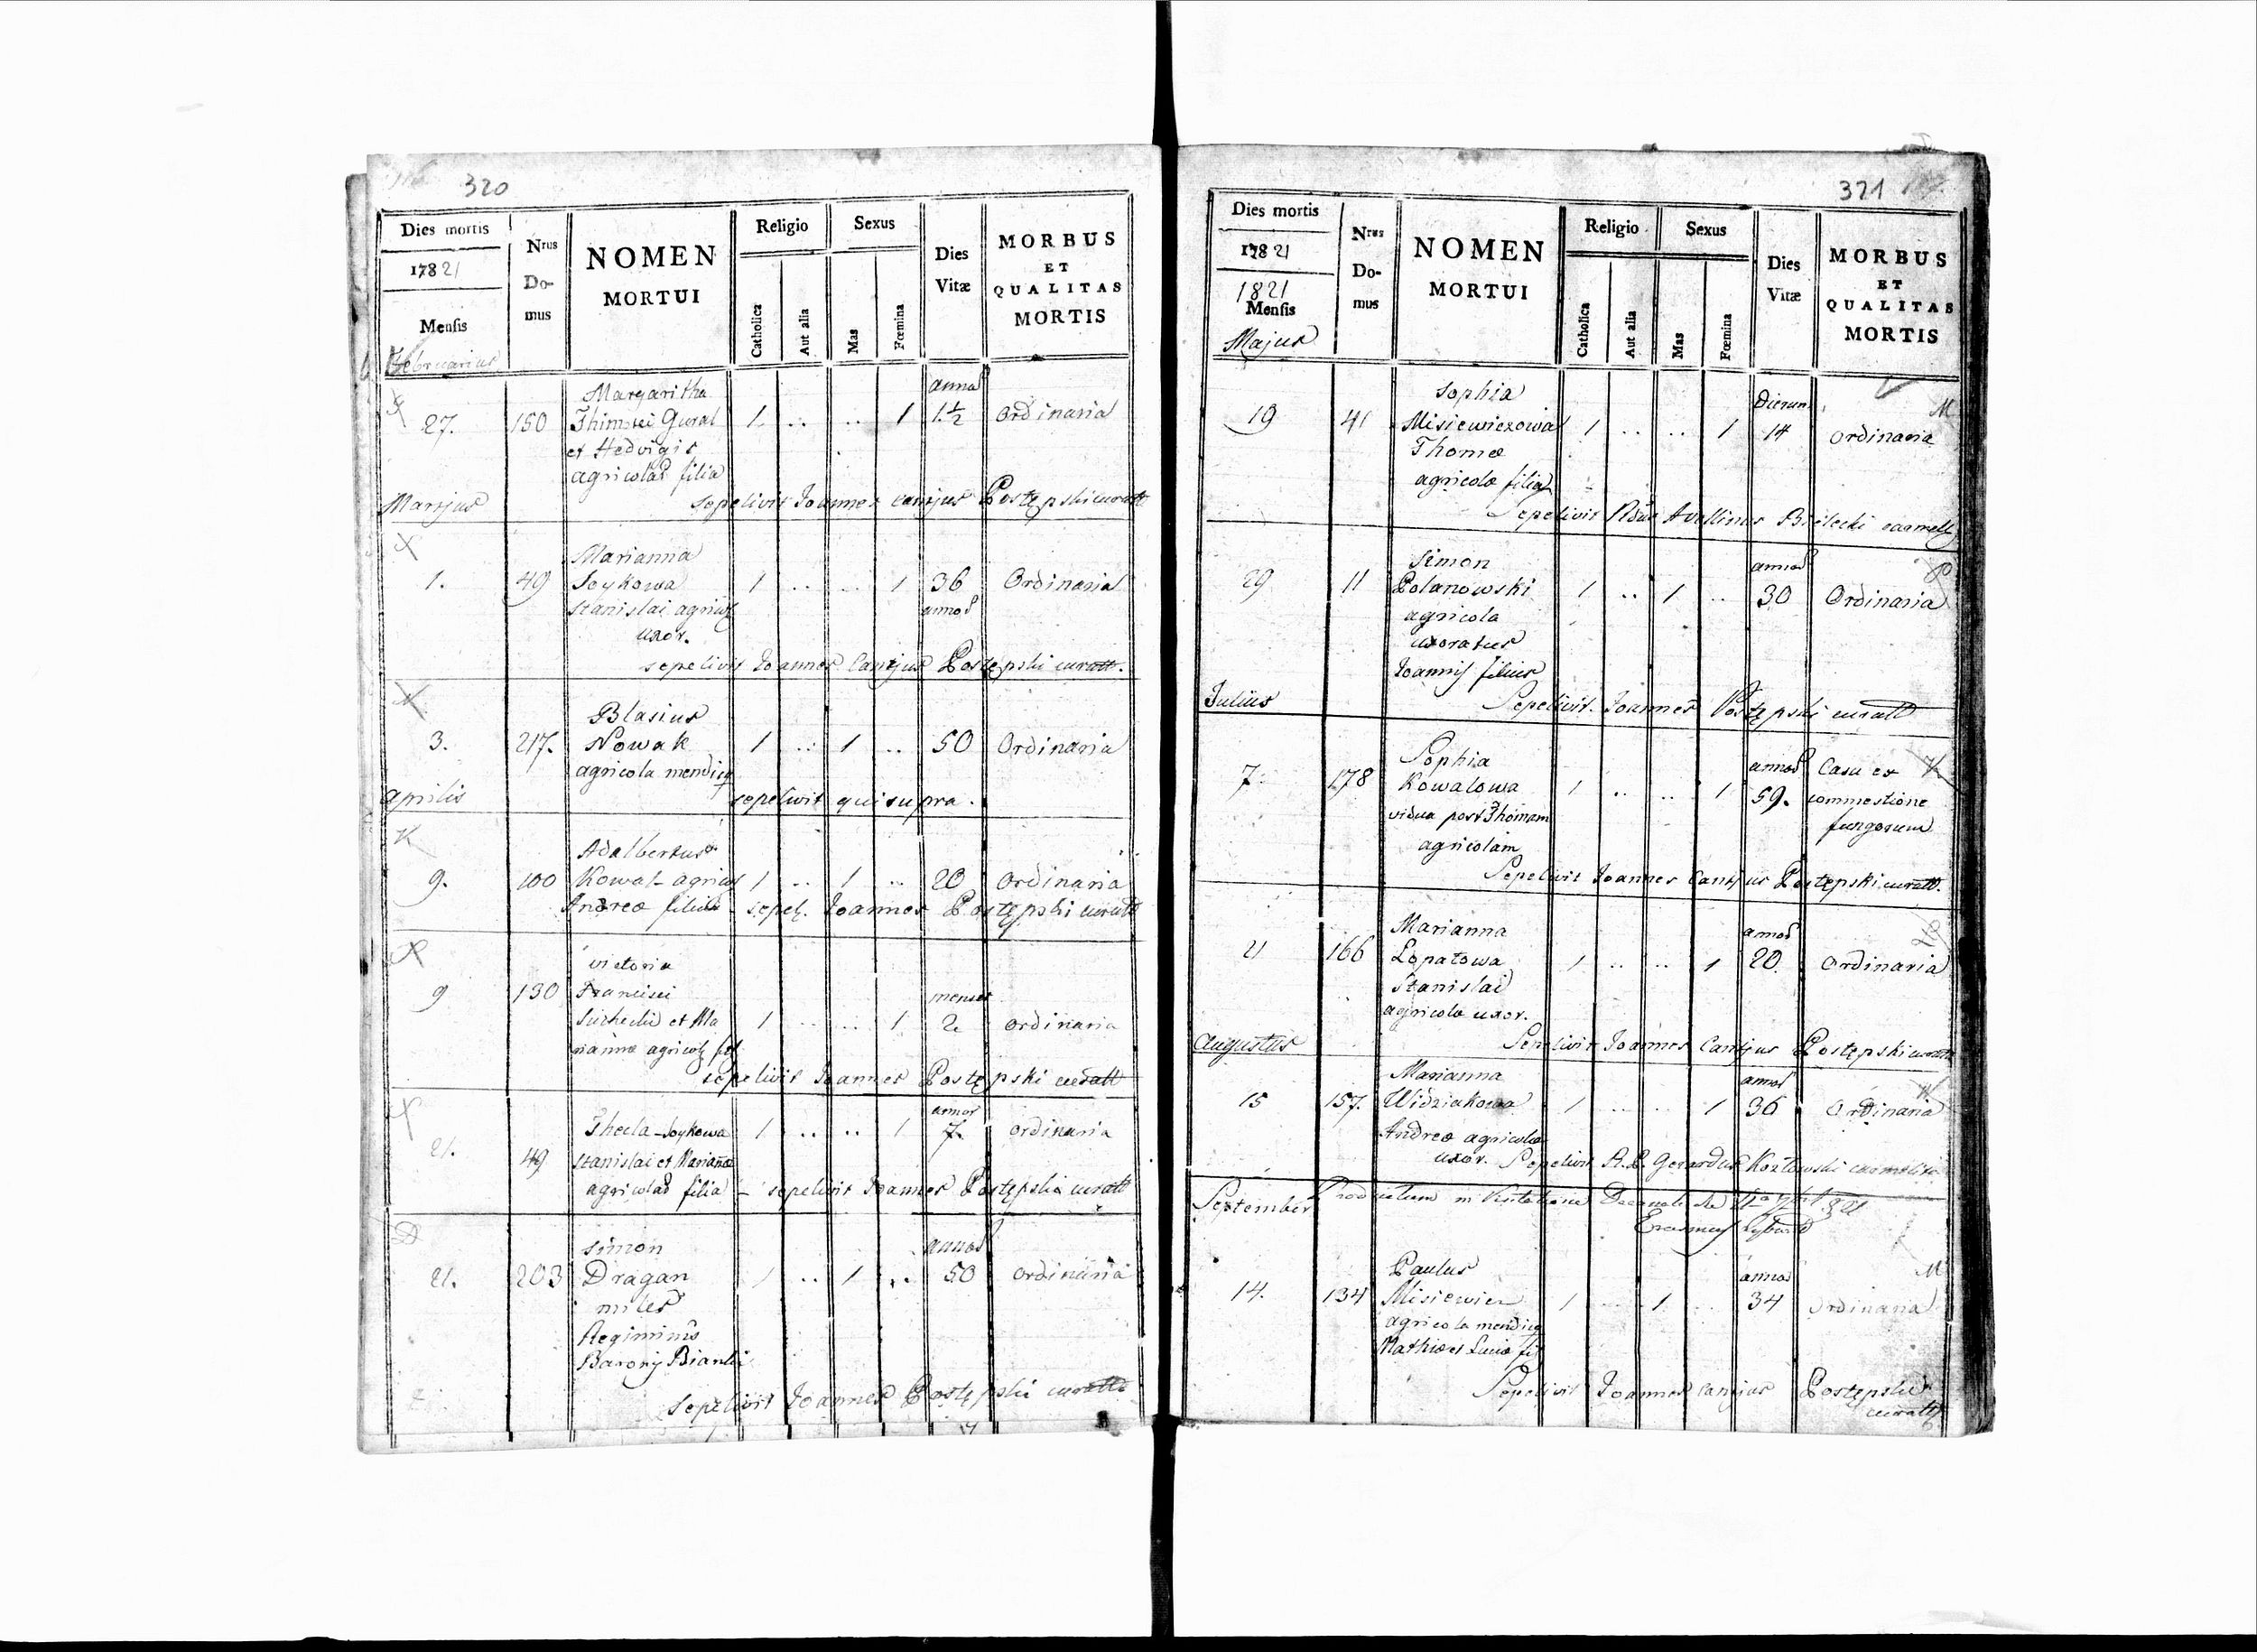 320
Dies mortis
1782 21
Mensis
Februarius
Nrus
Do-
mus
NOMEN
MORTUI
Religio
Catholica
Aut alia
Sexus
Mas
Fœmina
Dies
Vitæ
MORBUS
ET
QUALITAS
MORTIS
Margaritha anno
27. 150 Gural 1 .. .. 1 1½ Ordinaria
et Hedvigis
agricolae filia
Martius sepelivit Joannes Cantjus Postępski curatt
Marianna
1. 49 Soykowa 1 .. .. 1 36 Ordinaria
Stanislai agricolę annos
uxor.
sepelivit Joannes Cantjus Postępski curatt.
Blasius
3. 217. Nowak 1 .. 1 .. 50 Ordinaria
agricola mendicq
Aprilis sepelivit qui supra.
Adalbertus
9. 100 Kowal agricol 1 .. 1 .. 20 Ordinaria
Andreæ filius - sepel. Joannes Postępski curatt
Victoria
9 130 Francisci menses
et Ma 1 .. .. 1 2 ordinaria
rianna agricolę fil
sepelivit Joannes Postępski curatt
annos
Thecla Soykowa 1 .. .. 1 7. ordinaria
21. 49 Stanislai et Marianæ
agricolae filia - sepelivit Joannes Postępski curatt
Simon annos
21. 203 Dragan 1 .. 1 .. 50 ordinaria
miles
Regiminis
Baronij Bianki
sepelivit Joannes Postępski curatt
321
Dies mortis
178 21
1821
Mensis
Majus
Nrus
Do-
mus
NOMEN
MORTUI
Religio
Catholica
Aut alia
Sexus
Mas
Fœmina
Dies
Vitæ
MORBUS
ET
QUALITAS
MORTIS
Sophia Dierum M
19 41 Misiewiczowia 1 .. .. 1 14 ordinaria
Thomæ
agricolæ filia
Sepelivit Avellinus Bielecki
Simon annos P
29 11 Polanowski 1 .. 1 .. 30 Ordinaria
agricola
uxoratus
Joannis filius
Julius Sepelivit Joannes Postępski curatt
Sophia annos Casu ex K
7. 178 Kowalowa 1 .. .. 1 59. commestione
vidua post Thomam fungorum
agricolam
Sepelivit Joannes Cantjus Postępski curatt.
Marianna annos
21 166 Łopatowa 1 .. .. 1 20 ordinaria
Stanislai
agricolæ uxor.
Augustus Sepelivit Joannes Cantjus Postępski curatt
Marianna annos W
15 157. Widziakowa 1 .. .. 1 36 Ordinaria
Andreæ agricolæ
uxor. Sepelivit R.P. Gerardus Kozłowski
September Productum in Visitatione Decanali
Erasmus
Paulus annos M
14. 134 Misiewicz 1 .. 1 .. 34 Ordinaria
agricola mendicq
Mathiæ et Luciæ fil
Sepelivit Joannes Cantjus Postępski
curatt